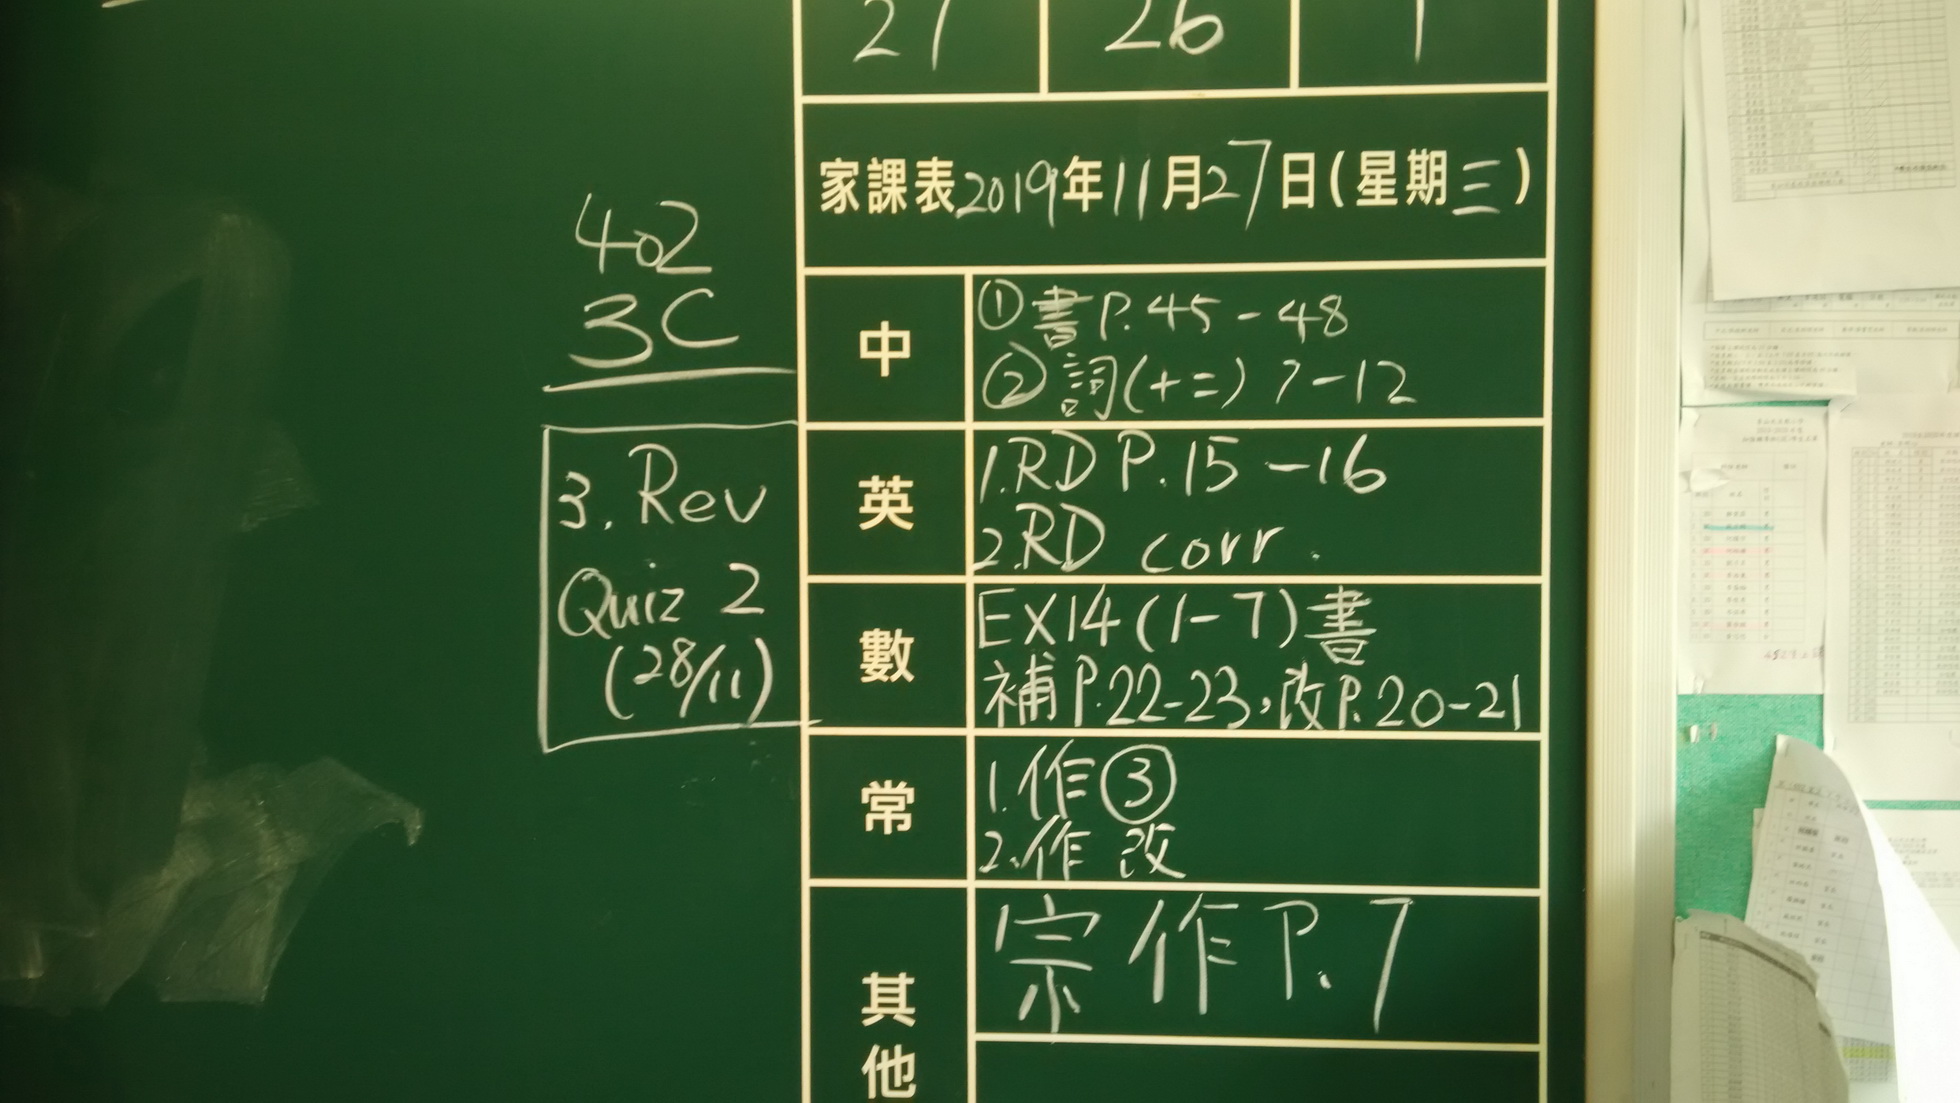 27 26 1
家課表2019年11月27日(星期三)
402
3C
中
①書P.45-48
②詞(十二)7-12
英
1.RD P.15-16
2.RD corr.
3. Rev
Quiz 2
(28/11)
數
EX14(1-7)書
補P.22-23,改P.20-21
常
1.作③
2.作改
其他
宗作P.7